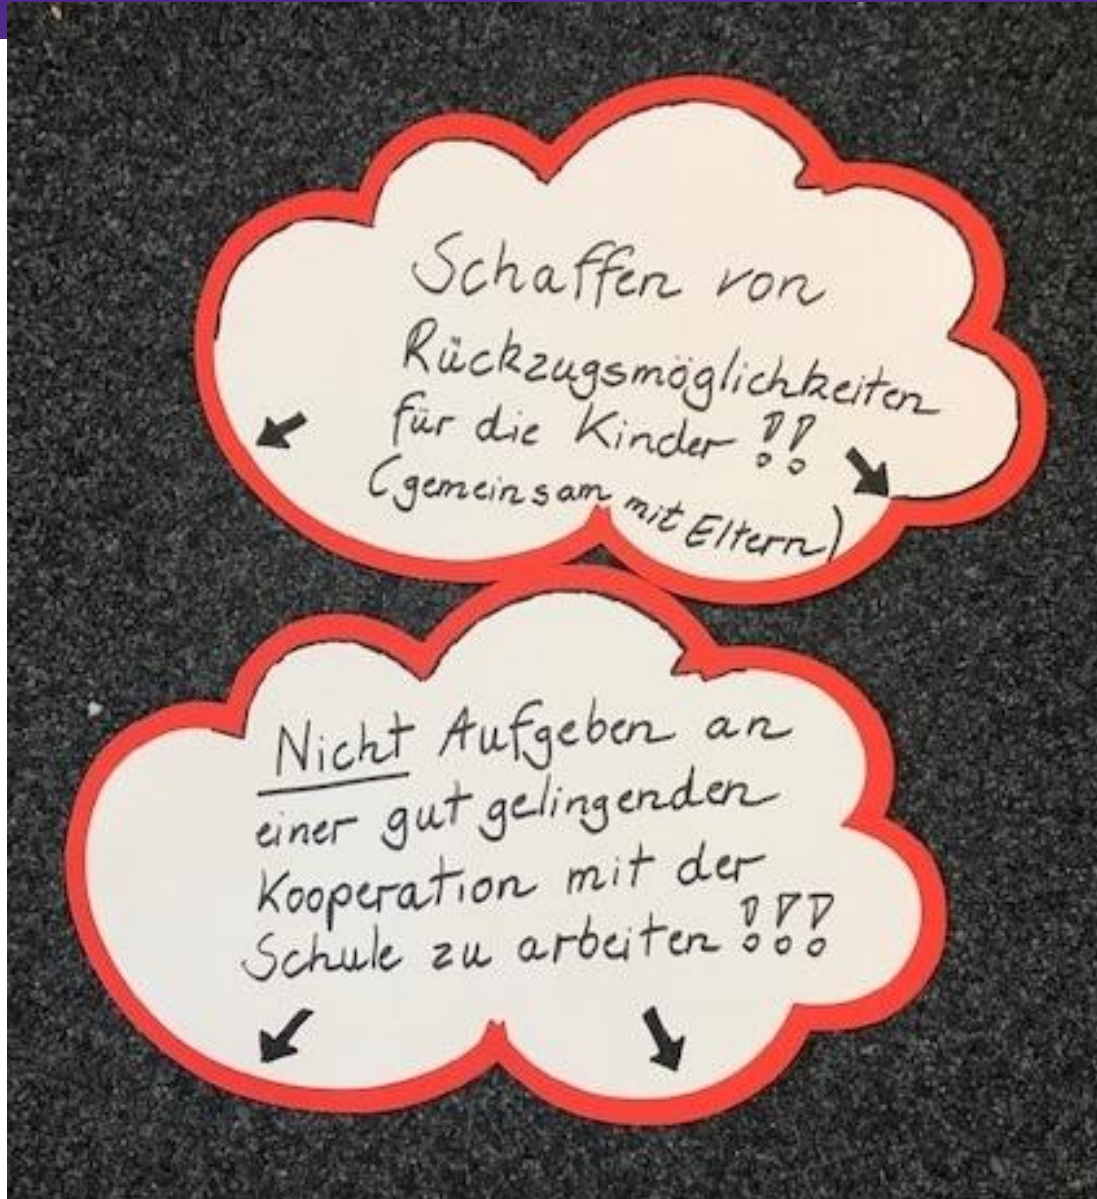 Schaffen von
Rückzugsmöglichkeiten
für die Kinder !!
(gemeinsam mit Eltern)
Nicht Aufgeben an
einer gut gelingenden
Kooperation mit der
Schule zu arbeiten !!!